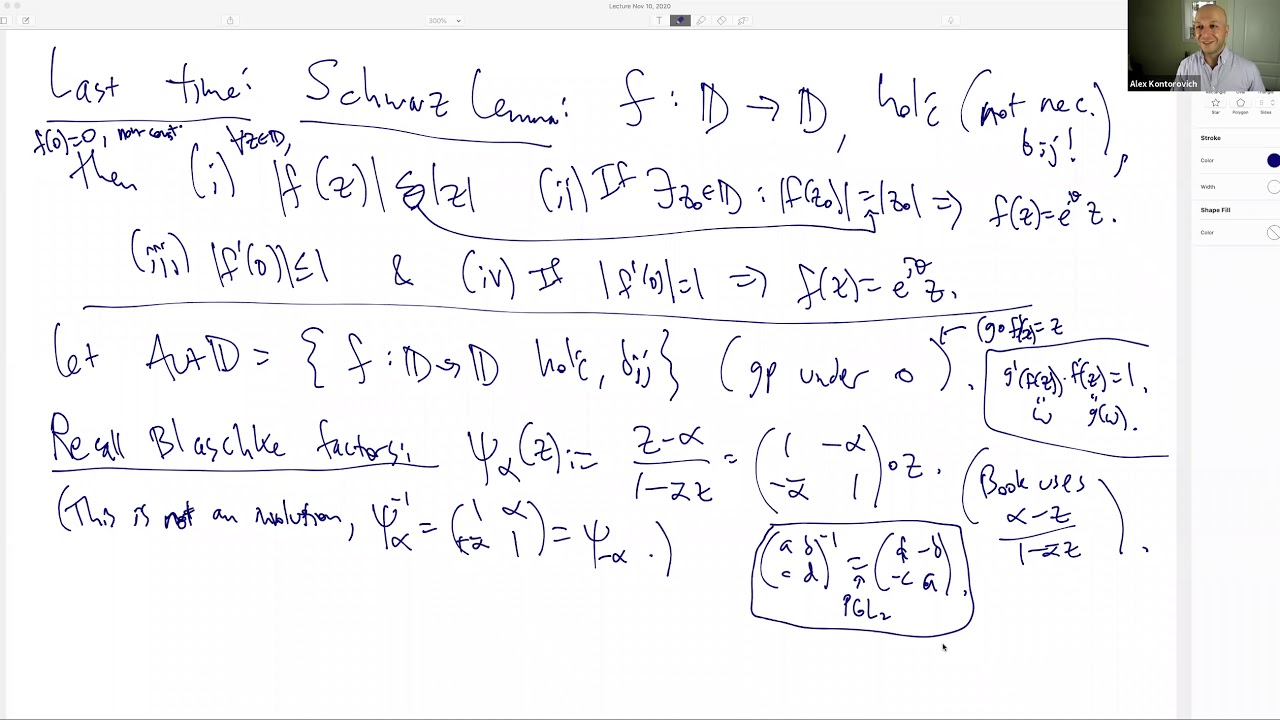 Lecture Nov 10, 2020
300%
Alex Kontorovich
Rectangle Oval Triangle
Star Polygon Sides
Stroke
Color
Width
Shape Fill
Color
Last time: Schwarz Lemma: f : 𝔻 → 𝔻, holc (not nec. bij!),
f(0)=0, non-const. ∀z∈𝔻,
then (i) |f(z)| ≤ |z| (ii) If ∃z₀∈𝔻 : |f(z₀)| = |z₀| ⇒ f(z)=e^{iθ} z.
(iii) |f'(0)| ≤ 1 & (iv) If |f'(0)|=1 ⇒ f(z)=e^{iθ} z.
Let Aut 𝔻 = { f : 𝔻 → 𝔻 holc, bij } (gp under ∘).
← (g∘f)(z)=z
g'(f(z))·f'(z)=1.
w g(w).
Recall Blaschke factors: ψ_α(z) := (z-α)/(1-ᾱz) = (1 -α; -ᾱ 1) ∘ z.
(Book uses (α-z)/(1-ᾱz)).
(This is not an involution, ψ_α^{-1} = (1 α; +ᾱ 1) = ψ_{-α}.)
(a b; c d)^{-1} = (d -b; -c a).
↑
PGL₂